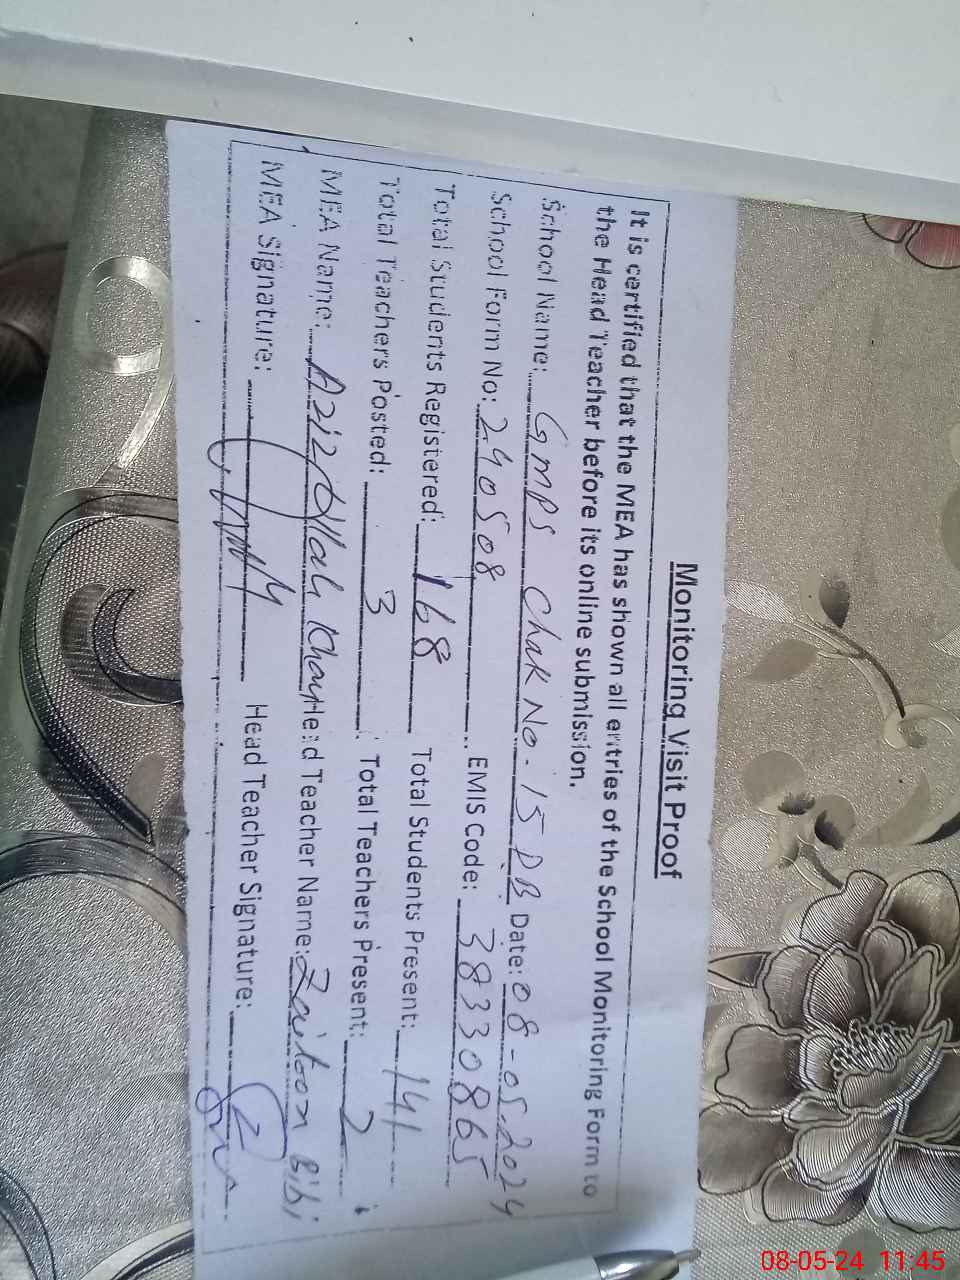 Monitoring Visit Proof
It is certified that the MEA has shown all entries of the School Monitoring Form to
the Head Teacher before its online submission.
School Name: GMPS Chak No. 15 DB Date: 08-05-2024
School Form No: 290508 EMIS Code: 38330865
Total Students Registered: 168 Total Students Present: 141
Total Teachers Posted: 3 Total Teachers Present: 2
MEA Name: Azizullah Khan Head Teacher Name: Zaitoon Bibi
MEA Signature: Head Teacher Signature:
08-05-24 11:45